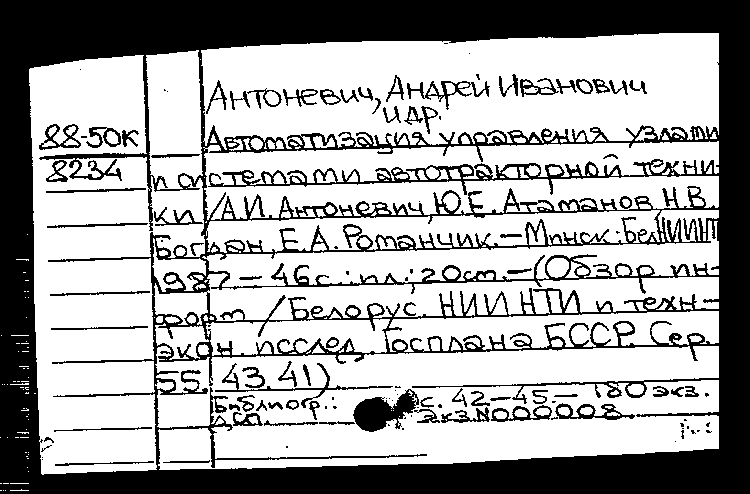 Антоневич, Андрей Иванович
и др.
88-50к
Автоматизация управления узлами
8234
и системами автотракторной техни-
ки /А.И. Антоневич, Ю.Е. Атаманов, Н.В.
Богдан, Е.А. Романчик. – Минск: БелНИИНТИ
1987 – 46с.: ил.; 20см. – (Обзор. ин-
форм / Белорус. НИИ НТИ и техн-
экон. исслед. Госплана БССР. Сер.
55. 43. 41).
Библиогр.: с. 42-45. – 180 экз.
ДСП. Экз. N000008.